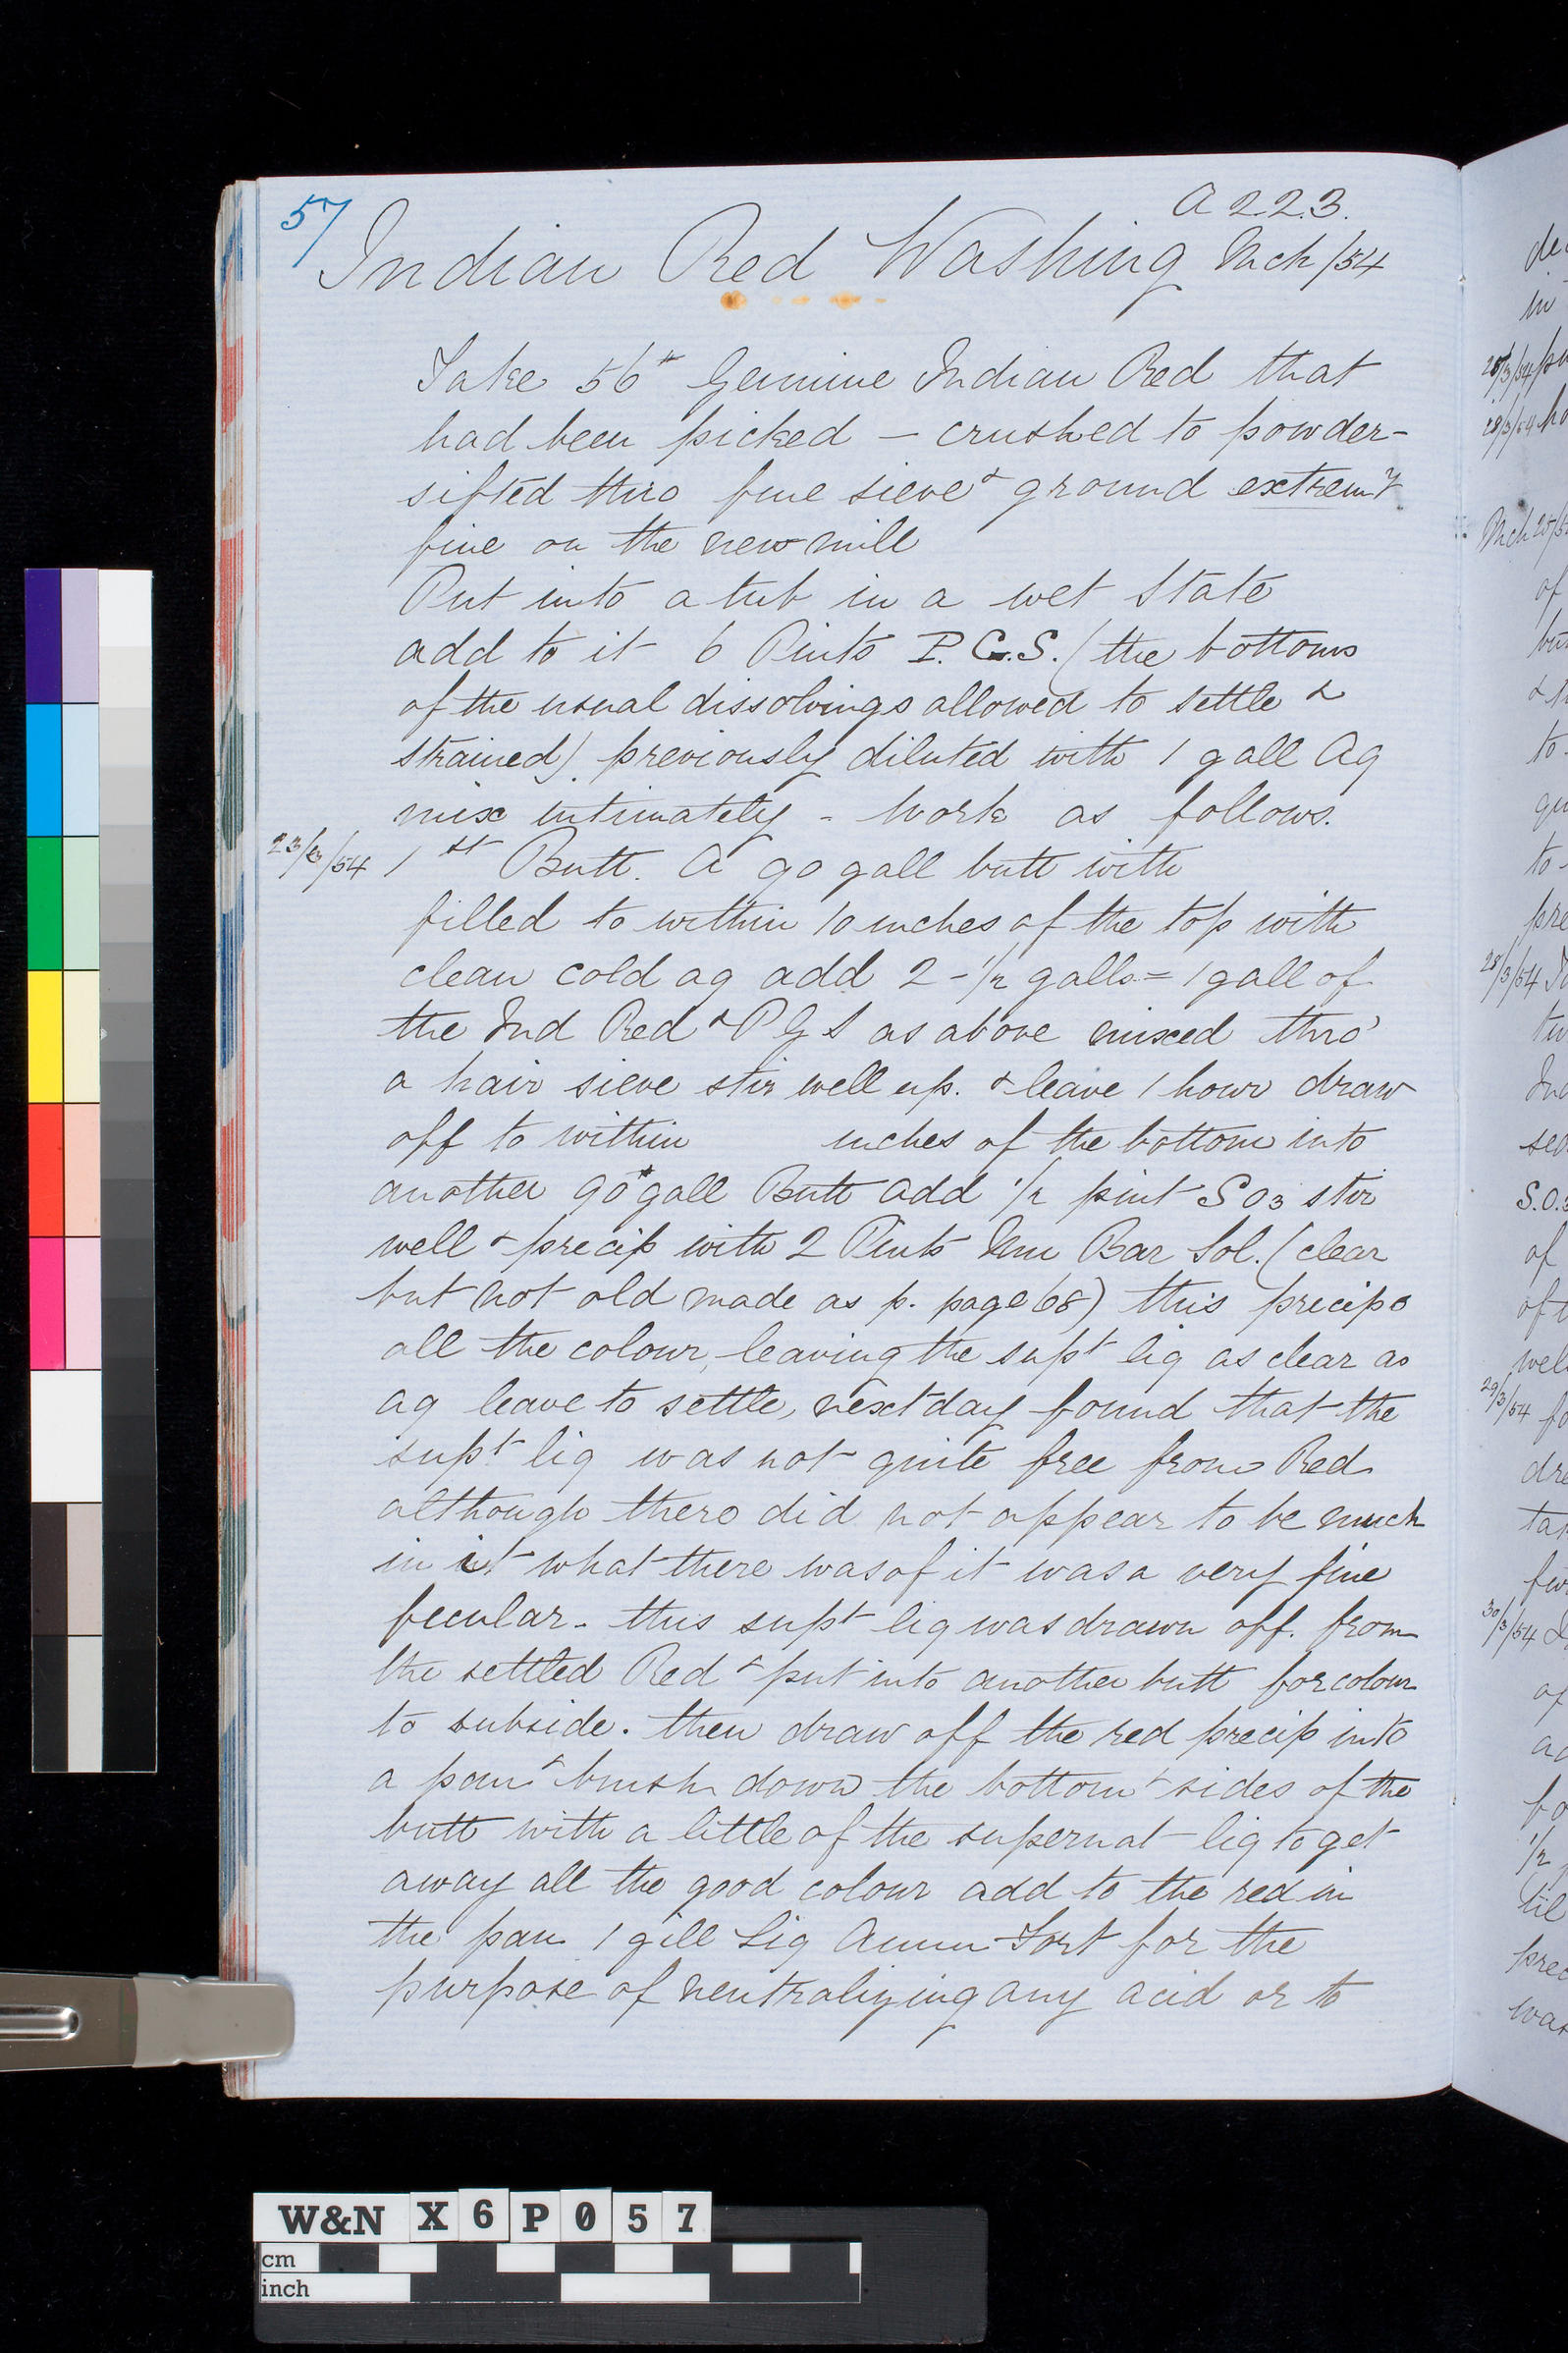 57
A 223.
Indian Red Washing Mch /54
Take 56 lb Genuine Indian Red that
had been picked - crushed to powder -
sifted thro fine sieve & ground extremy
fine on the new mill
Put into a tub in a wet state
add to it 6 Pints P.G.S. (the bottoms
of the usual dissolvings allowed to settle &
strained) previously diluted with 1 gall Aq
mix intimately - work as follows.
23/3/54 1st Butt. A 90 gall butt with
filled to within 10 inches of the top with
clean cold aq add 2-1/2 galls = 1 gall of
the Ind Red & P G S as above mixed thro'
a hair sieve stir well up. & leave 1 hour draw
off to within inches of the bottom into
another 90 gall Butt add 1/2 pint SO3 stir
well & precip with 2 Pints Mu Bar Sol. (clear
but not old made as p. page 68) this precips
all the colour, leaving the supt liq as clear as
aq leave to settle, next day found that the
supt liq was not quite free from Red
although there did not appear to be much
in it what there was of it was a very fine
fecular - this supt liq was drawn off. from
the settled Red & put into another butt for colour
to subside. then draw off the red precip into
a pan & brush down the bottom & sides of the
butt with a little of the supernat liq to get
away all the good colour add to the red in
the pan 1 gill Liq Amm Fort for the
purpose of neutralizing any acid or to
in
28/3/54
Mch 25/
of
to
to
28/3/54
S.O.3
of
29/3/54
30/3/54
of
1/2
W&N X6P057
cm
inch